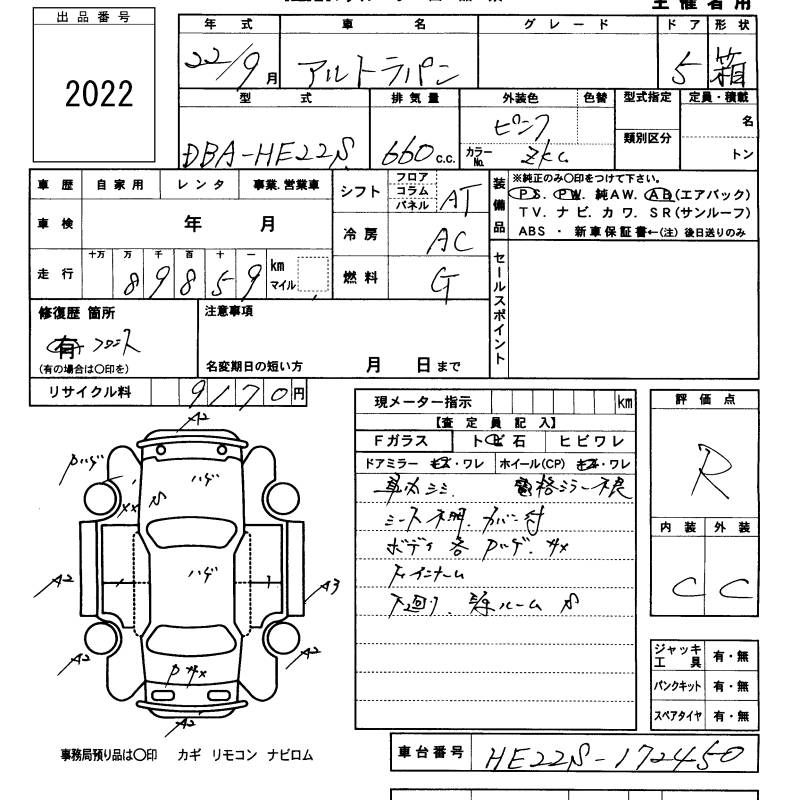 主催者用
出品番号
2022
年式 車名 グレード ドア 形状
22/9月 アルトラパン 5 箱
型式 排気量 外装色 色替 型式指定 定員・積載
DBA-HE22S 660c.c. ピンク カラーNo. ZKC 類別区分 名
トン
車歴 自家用 レンタ 事業.営業車
車検 年 月
走行 十万 万 千 百 十 一 km マイル
8 9 8 5 9
シフト フロア コラム パネル AT
冷房 AC
燃料 G
装備品
※純正のみ○印をつけて下さい。
PS. PW. 純AW. AB(エアバック)
TV. ナビ. カワ. SR(サンルーフ)
ABS ・ 新車保証書←(注) 後日送りのみ
セールスポイント
修復歴 箇所
有 フロント
(有の場合は○印を)
注意事項
名変期日の短い方 月 日まで
リサイクル料 9170円
現メーター指示 km
【査定員記入】
Fガラス トビ石 ヒビワレ
ドアミラー キズ・ワレ ホイール(CP) キズ・ワレ
車内シミ. 電格ミラー不良
シート不明. カバー付
ボディ各Pハゲ. サメ
下廻り. ルーム S
評価点
R
内装 外装
C C
ジャッキ工具 有・無
パンクキット 有・無
スペアタイヤ 有・無
A2
Pハゲ
ハゲ
S
ハゲ
A2
A3
A2
A2
P サメ
A2
事務局預り品は○印 カギ リモコン ナビロム
車台番号 HE22S-172450